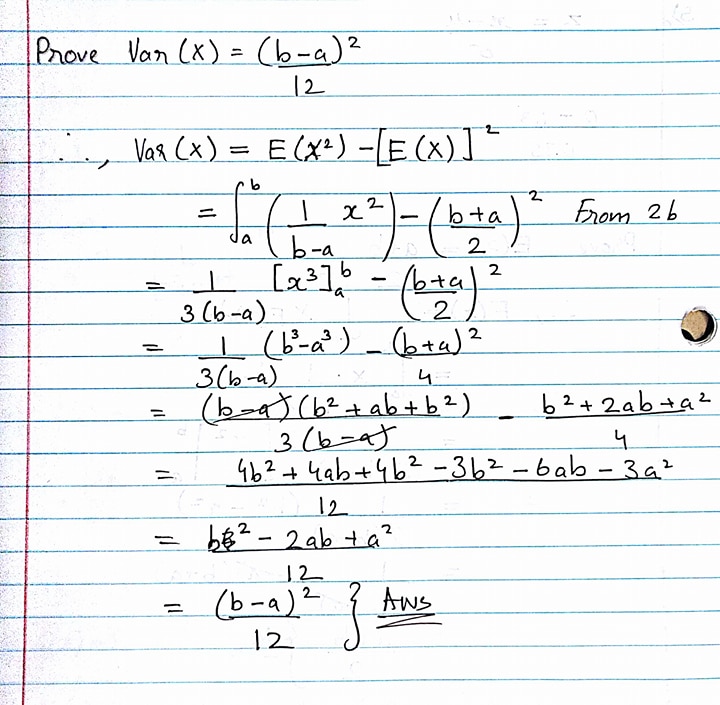 Prove Var(X) = (b-a)²/12
∴, Var(X) = E(X²) - [E(X)]²
= ∫ₐᵇ (1/(b-a) x²) - ((b+a)/2)² From 2b
= 1/(3(b-a)) [x³]ₐᵇ - ((b+a)/2)²
= 1/(3(b-a)) (b³-a³) - (b+a)²/4
= (b-a)(b²+ab+b²)/(3(b-a)) - (b²+2ab+a²)/4
= (4b²+4ab+4b²-3b²-6ab-3a²)/12
= (b²-2ab+a²)/12
= (b-a)²/12 } Ans